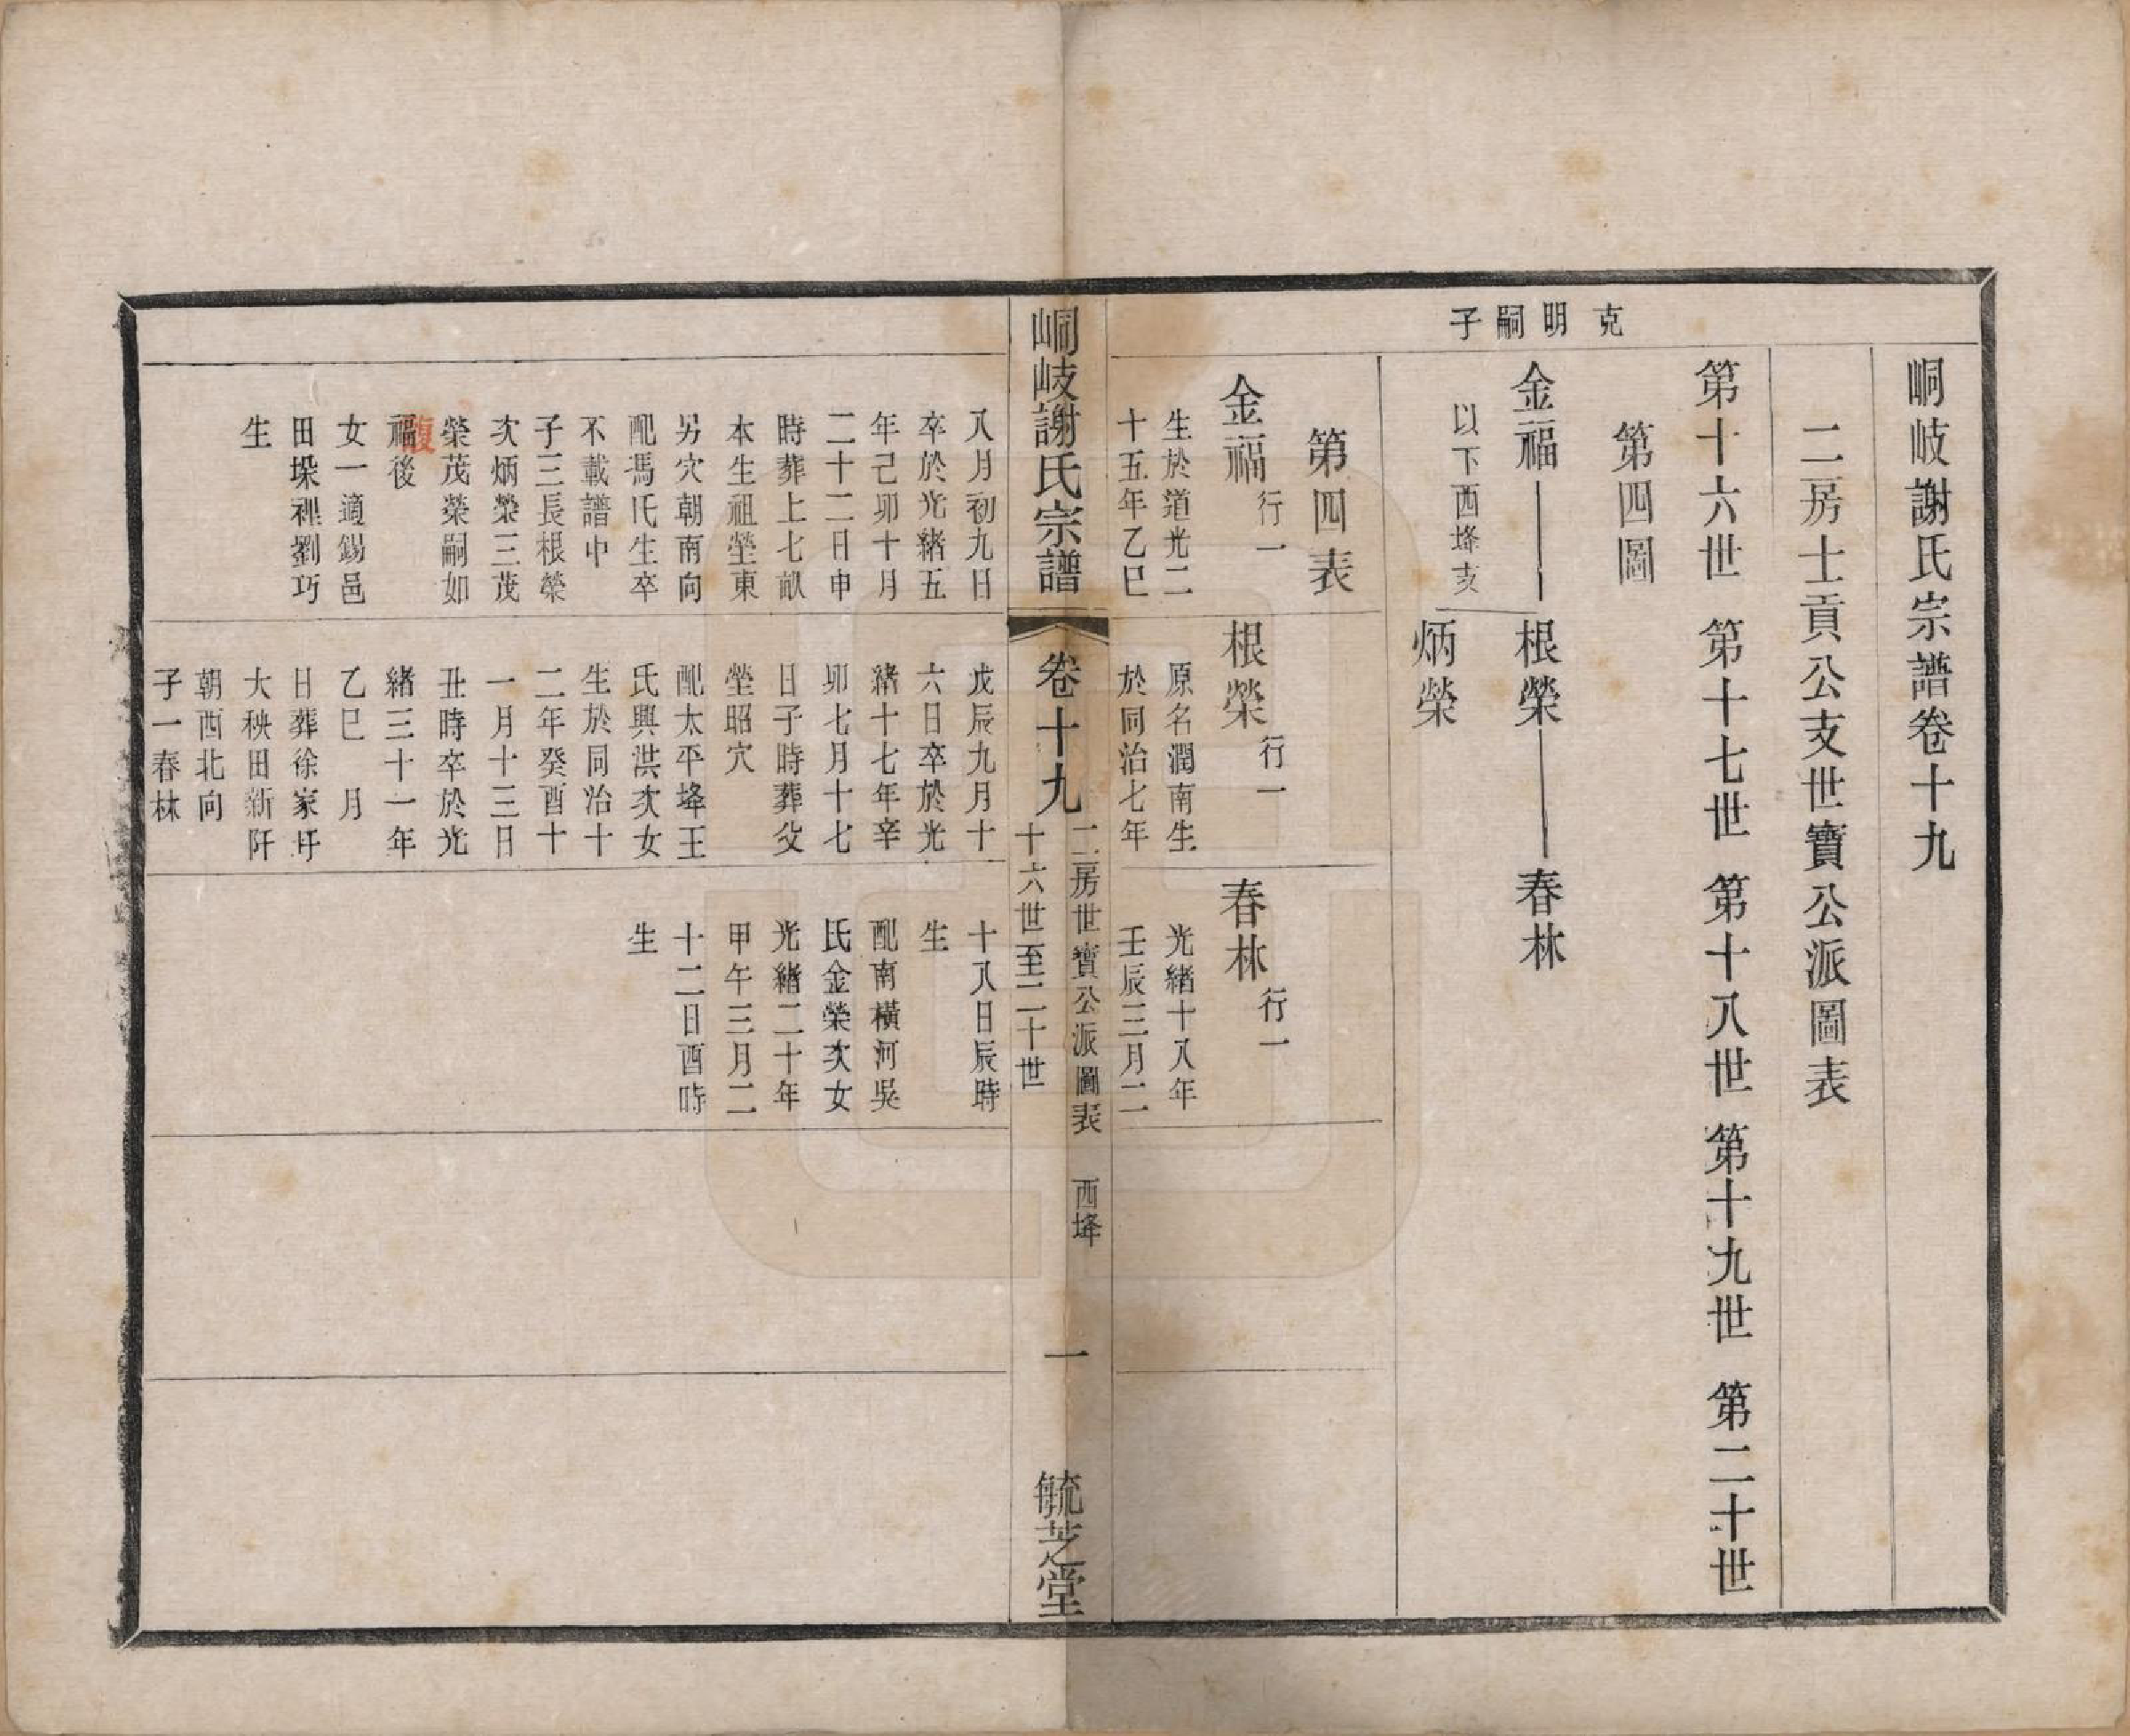 峒岐謝氏宗譜卷十九
二房士貢公支世寶公派圖表
第十六世 第十七世 第十八世 第十九世 第二十世
第四圖
克明嗣子
金福 根榮 春林
以下西埄亥
炳榮
第四表
金福 行一
生於道光二
十五年乙巳
根榮 行一
原名潤南生
於同治七年
春林 行一
光緒十八年
壬辰三月二
峒岐謝氏宗譜 卷十九
二房世寶公派圖表 西埄
十六世至二十世
一
毓芝堂
八月初九日
卒於光緒五
年己卯十月
二十二日申
時葬上七畝
本生祖塋東
另穴朝南向
配馮氏生卒
不載譜中
子三長根榮
次炳榮三茂
榮茂榮嗣如
福後
復
女一適錫邑
田垛裡劉巧
生
戊辰九月十
六日卒於光
緒十七年辛
卯七月十七
日子時葬父
塋昭穴
配太平埄王
氏興洪次女
生於同治十
二年癸酉十
一月十三日
丑時卒於光
緒三十一年
乙巳 月
日葬徐家圩
大秧田新阡
朝西北向
子一春林
十八日辰時
生
配南橫河吳
氏金榮次女
光緒二十年
甲午三月二
十二日酉時
生